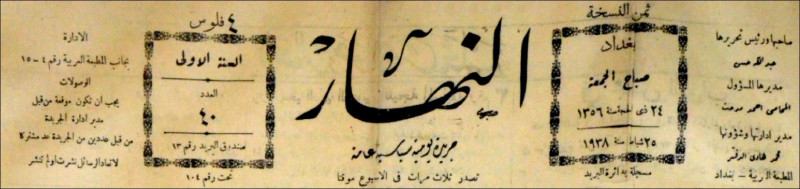 صاحبها ورئيس تحريرها
عبدالله حسن
مديرها المسؤول
المحامي احمد مدحت
مدير ادارتها وشؤونها
محمد هادي الدفتر
المطبعة العربية - بغداد
ثمن النسخة
بغداد
صباح الجمعة
٢٤ ذي الحجة سنة ١٣٥٦
٢٥ شباط سنة ١٩٣٨
مسجلة بدائرة البريد
النهار
جريدة يومية سياسية عامة
تصدر ثلاث مرات في الاسبوع موقتا
٤ فلوس
السنة الاولى
العدد
٤٠
صندوق البريد رقم ١٣
تحت رقم ١٠٤
الادارة
بجانب المطبعة العربية رقم ٤ - ١٥
الوصولات
يجب ان تكون موقعة من قبل
مدير ادارة الجريدة
من قبل عددين من الجريدة عد مشتركا
لاتعاد الرسائل نشرت او لم تنشر